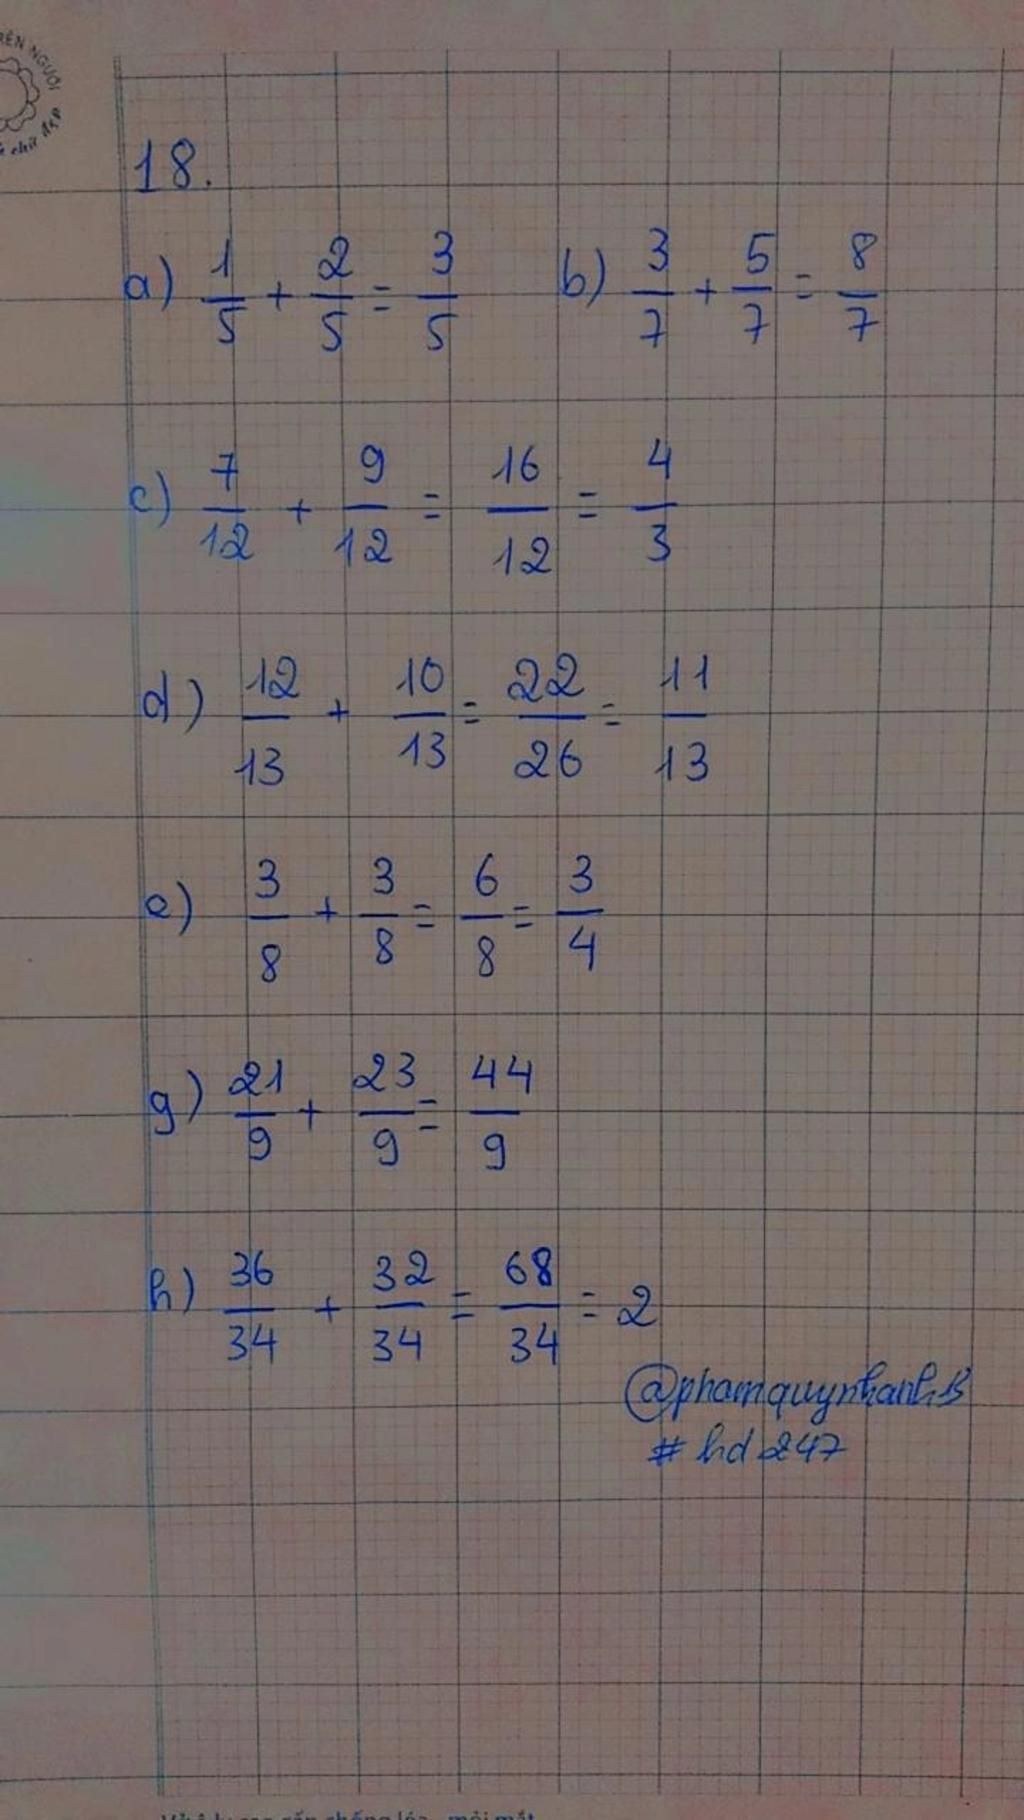 RÊN NGƯỜI
chữ đẹp
18.
a) 1/5 + 2/5 = 3/5 b) 3/7 + 5/7 = 8/7
c) 7/12 + 9/12 = 16/12 = 4/3
d) 12/13 + 10/13 = 22/26 = 11/13
e) 3/8 + 3/8 = 6/8 = 3/4
g) 21/9 + 23/9 = 44/9
h) 36/34 + 32/34 = 68/34 = 2
@phamquynhanhB
# hd 247